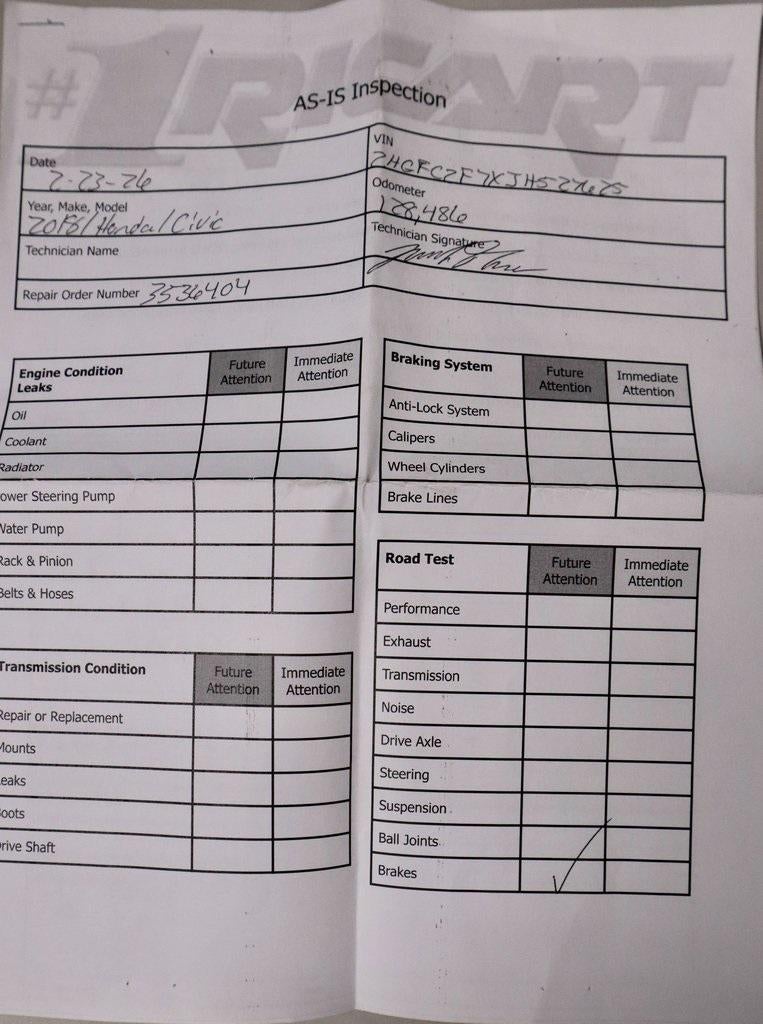 #1RICART
AS-IS Inspection
Date
2-23-26
VIN
2HGFC2F7XJH527625
Year, Make, Model
2018/Honda/Civic
Odometer
128,486
Technician Name
Technician Signature
Repair Order Number 3536404
Engine Condition
Leaks
Future
Attention
Immediate
Attention
Oil
Coolant
Radiator
ower Steering Pump
Water Pump
Rack & Pinion
Belts & Hoses
Transmission Condition
Future
Attention
Immediate
Attention
Repair or Replacement
Mounts
eaks
oots
rive Shaft
Braking System
Future
Attention
Immediate
Attention
Anti-Lock System
Calipers
Wheel Cylinders
Brake Lines
Road Test
Future
Attention
Immediate
Attention
Performance
Exhaust
Transmission
Noise
Drive Axle
Steering
Suspension
Ball Joints
Brakes